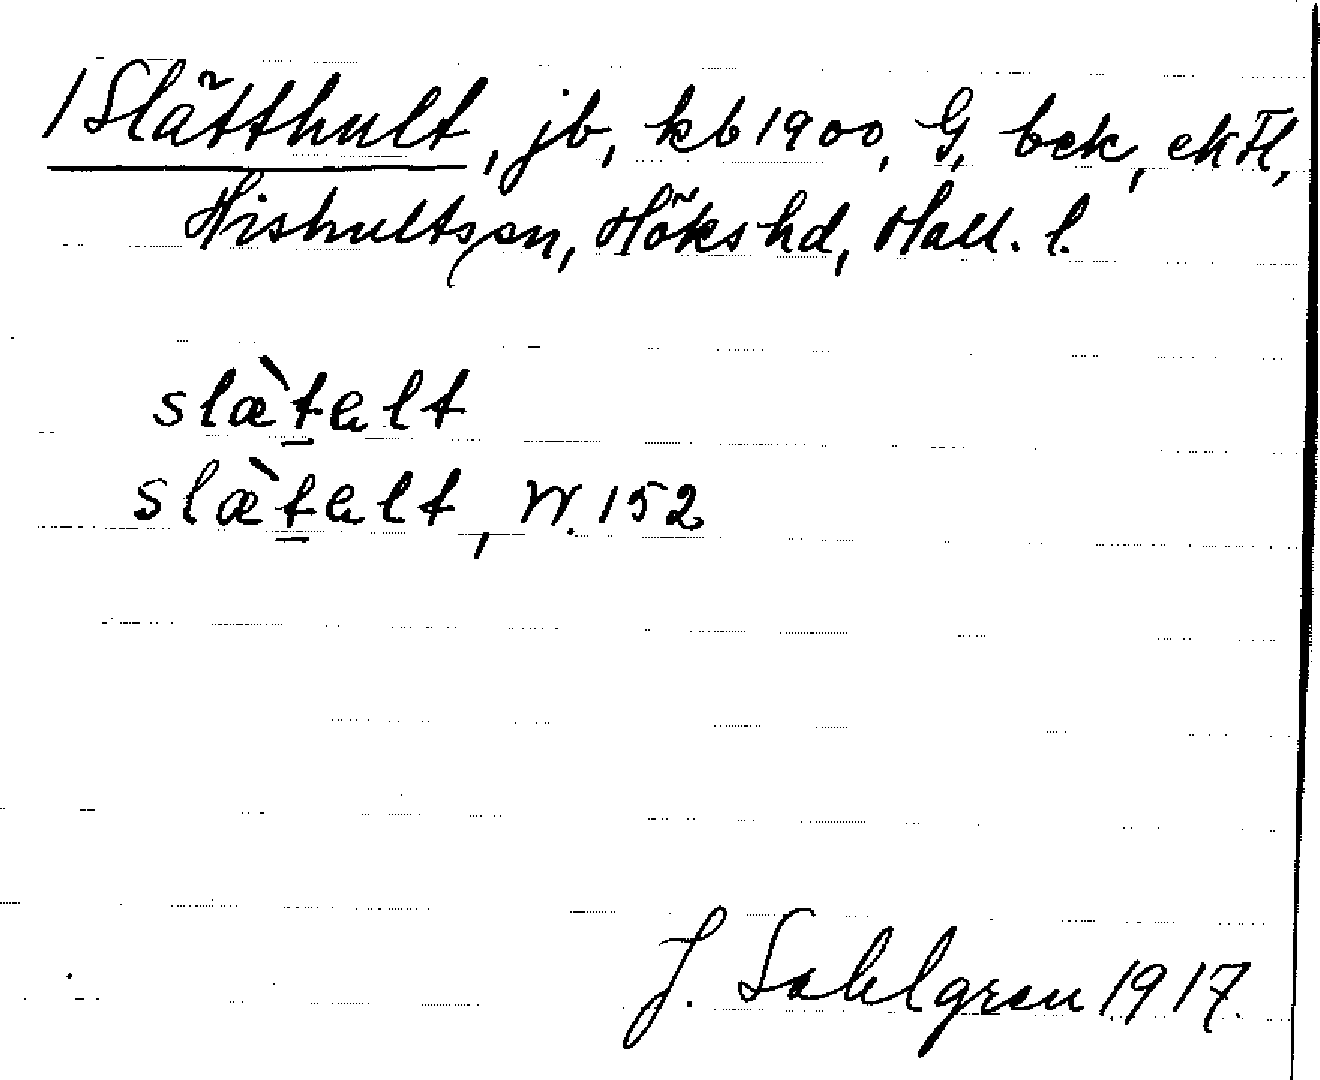 / Slätthult, jb, kb 1900, G, bek, ek Fl,
Hishultssn, Höks hd, Hall. l.
slæ̀talt
slæ̀talt, W. 152
J. Sahlgren 1917.